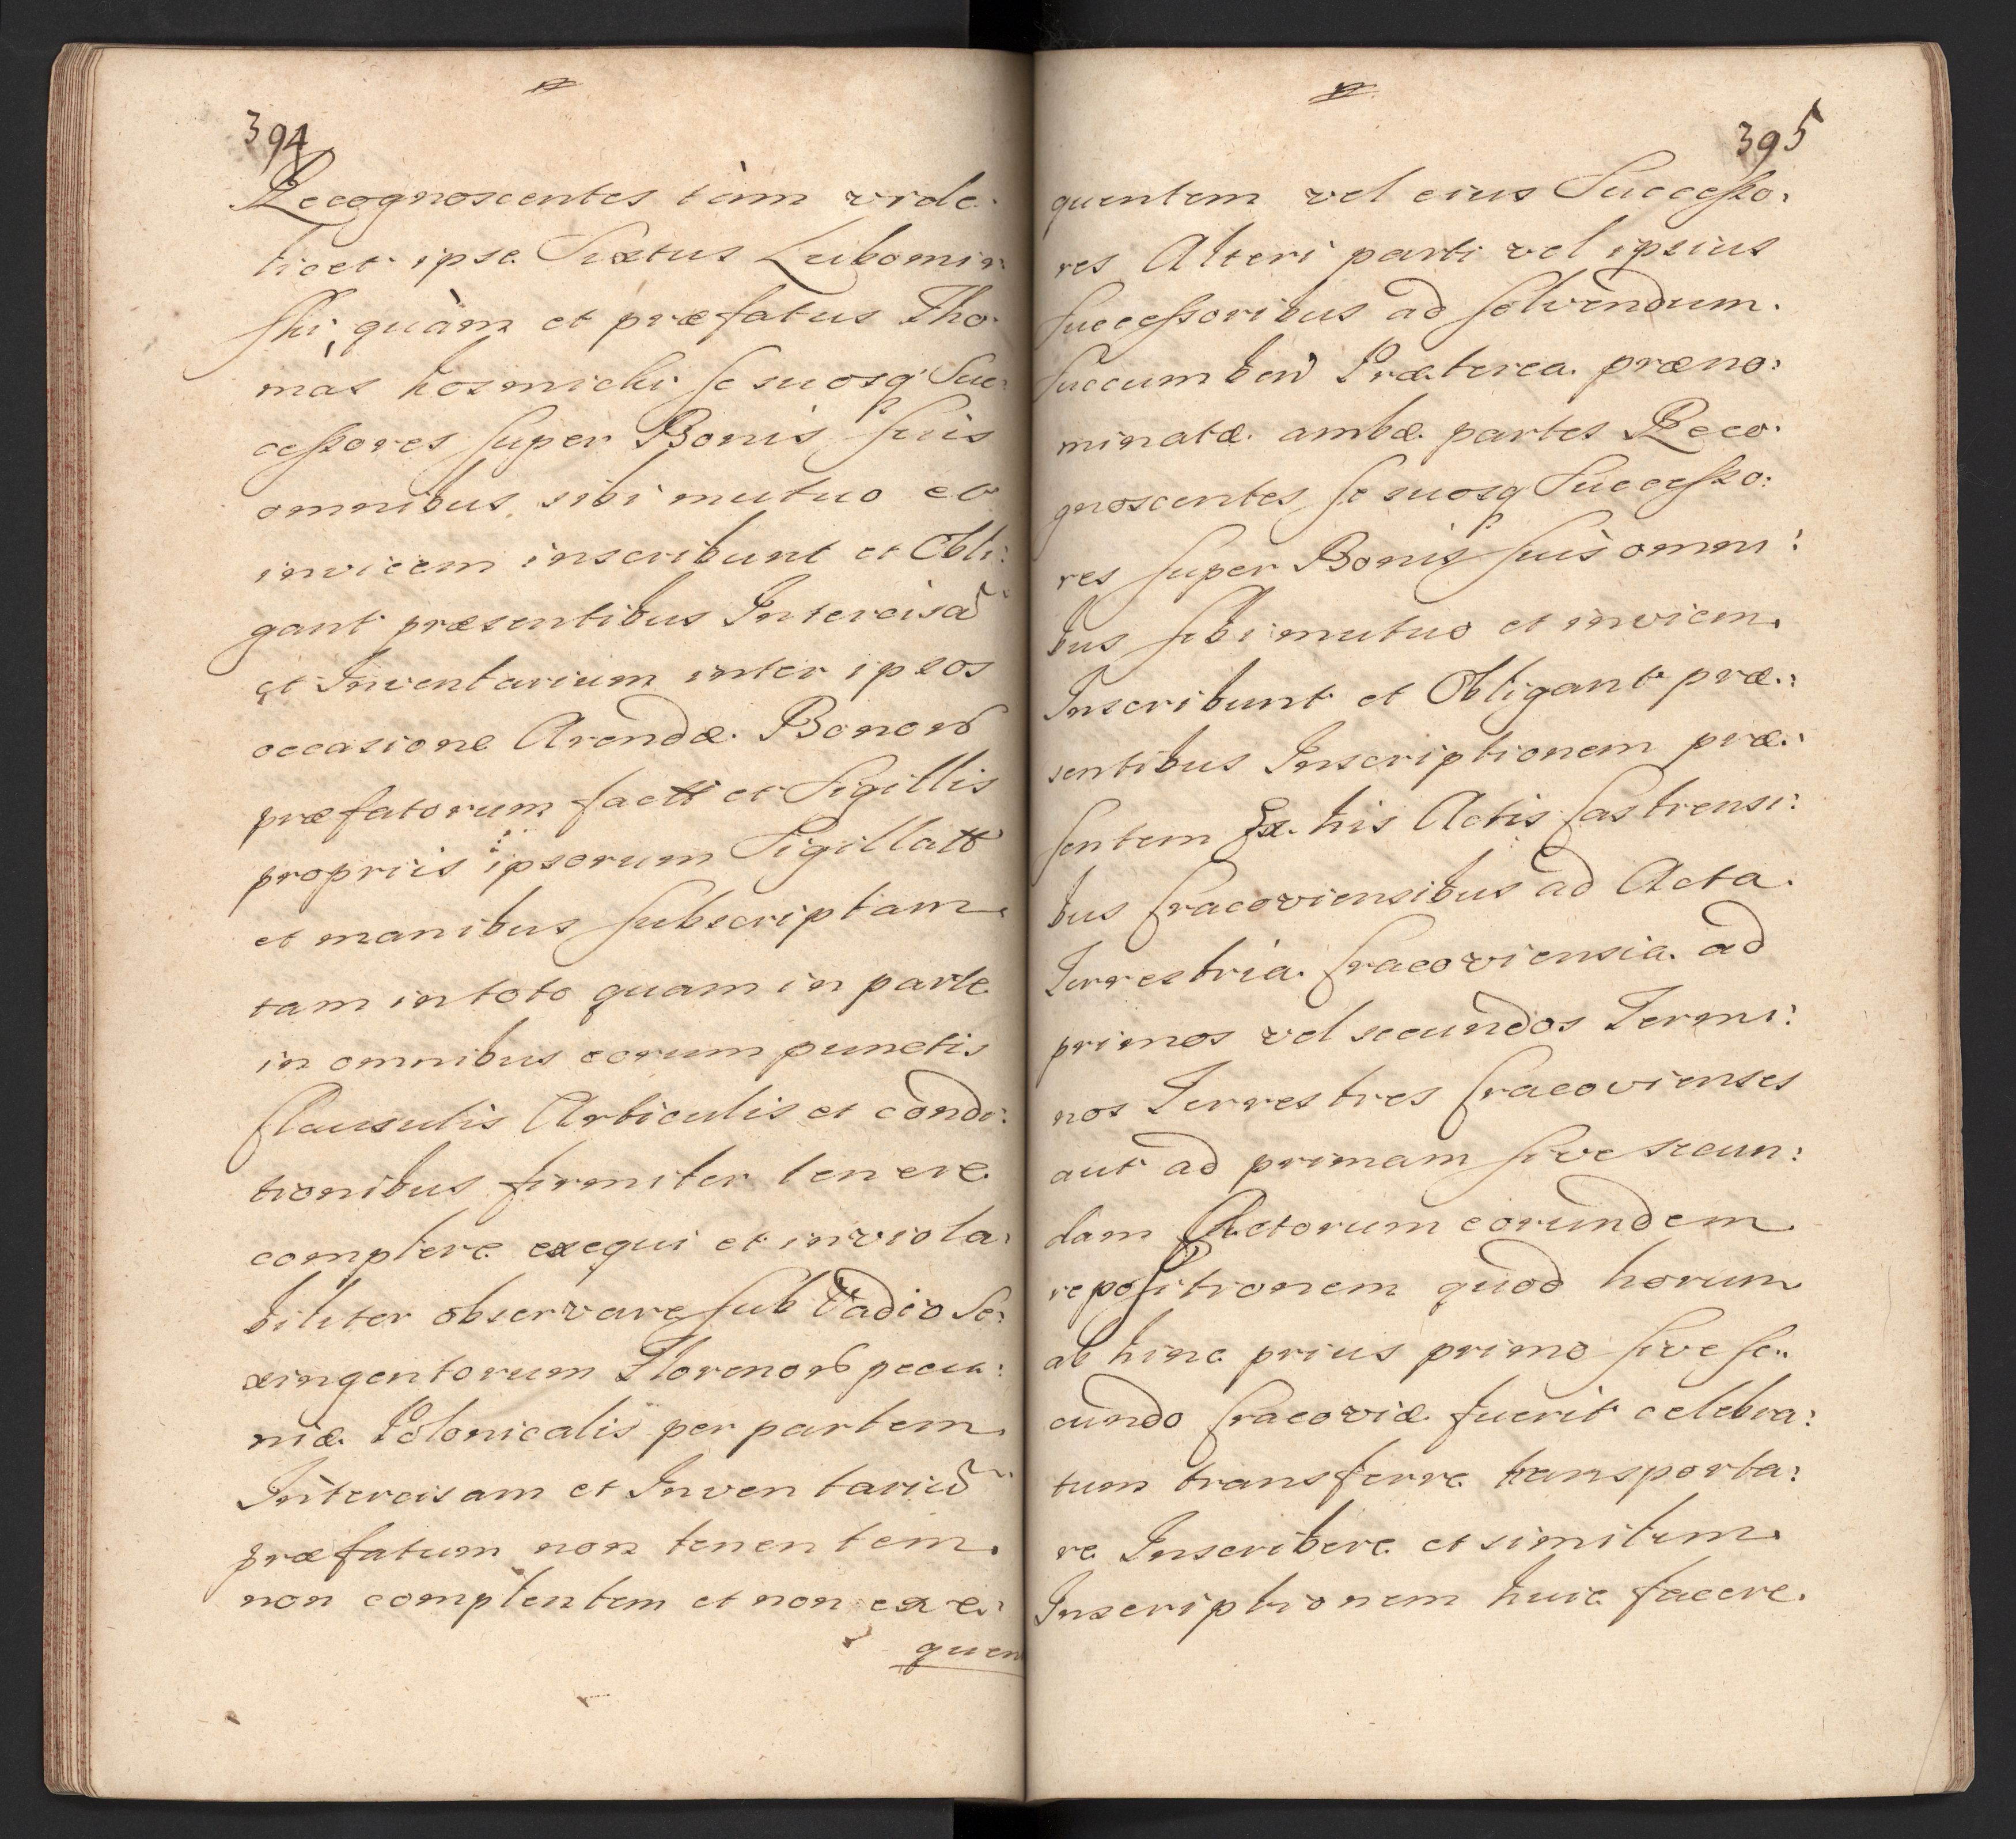 394
Recognoscentes tàm vide
licet ipse Sixtus Lubomir:
ski, quàm et præfatus Tho
mas kosmicki se suosq Suc:
cessores super Bonis suis
omnibus sibi mutuo et
invicem inscribunt et Obli:
gant præsentibus Intercisã
et Inventarium inter ipsos
occasione Arendæ Bonor
præfatorum factt et Sigillis
propriis ipsorum Sigillatt
et manibus subscriptam
tam in toto quam in parte
in omnibus eorum punctis
Clausulis Articulis et condi:
tionibus firmiter tenere
complere exequi et inviola:
biliter observare sub Vadio Se:
xingentorum Florenor pecu:
niæ Polonicalis per partem
Intercisam et Inventariũ
præfatum non tenentem
non complentem et non exe:
quen
395
quentem vel eius Successo:
res Alteri parti vel ipsius
successoribus ad solvendum
succumben Præterea præno:
minatæ ambæ partes Reco:
gnoscentes se suosq Successo:
res super Bonis suis omni:
bus sibi mutuo et invicem
Inscribunt et Obligant præ:
sentibus Inscriptionem præ:
sentem Ex his Actis Castrensi:
bus Cracoviensibus ad Acta
Terrestria Cracoviensia ad
primos vel secundos Termi:
nos Terrestres Cracovienses
aut ad primam sive secun:
dam Actorum eorundem
repositionem quod horum
ab hinc prius primo sive se:
cundo Cracoviæ fuerit celebra:
tum transferre transporta:
re Inscribere et similem
Inscriptionem huic facere